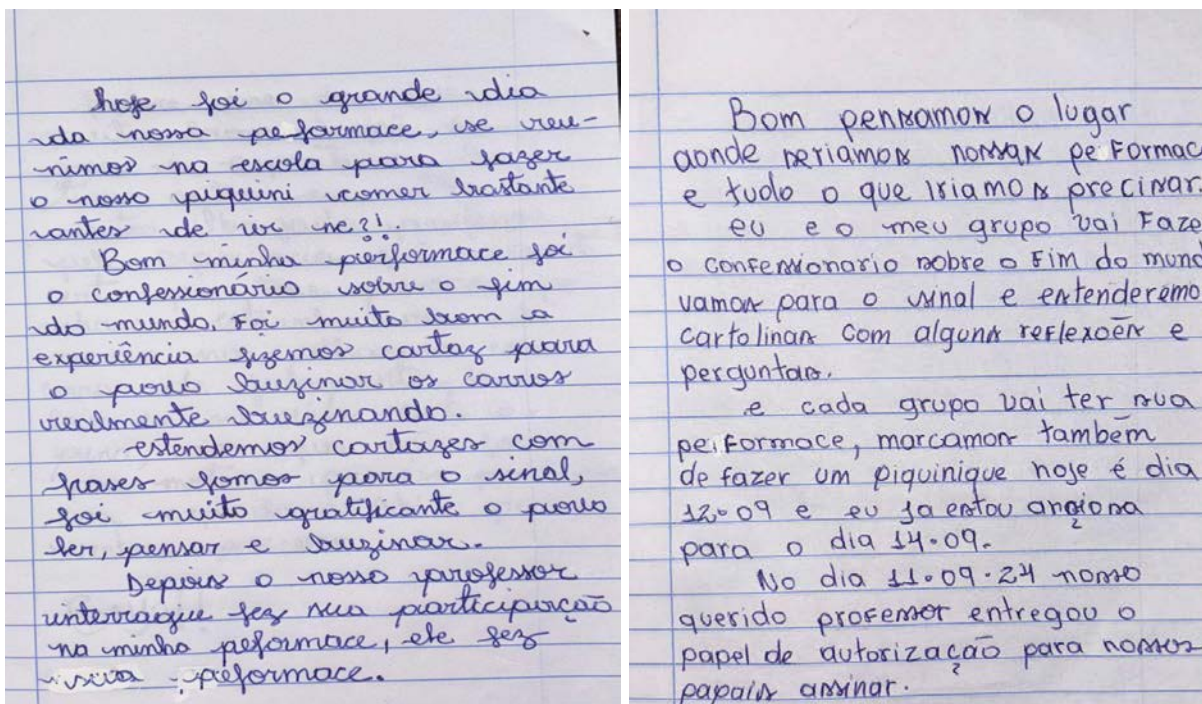 hoje foi o grande dia
da nossa peformace, se reu-
nimos na escola para fazer
o nosso piquini comer bastante
antes de ir ne?!.
Bom minha performace foi
o confessionário sobre o fim
do mundo. Foi muito bom a
experiência fizemos cartaz para
o povo buzinar os carros
realmente buezinando.
estendemos cartazes com
frases fomos para o sinal,
foi muito gratificante o povo
ler, pensar e buzinar.
Depois o nosso professor
interragiu fez sua participação
na minha peformace, ele fez
sua peformace.
Bom pensamos o lugar
aonde seriamos nossas peiFormac
e tudo o que iriamos precisar.
eu e o meu grupo vai Faze
o confessionario sobre o Fim do mund
vamos para o sinal e estenderemo
cartolinas com alguns reflexoēs e
perguntas.
e cada grupo vai ter sua
peiFormace, marcamos também
de fazer um piquinique hoje é dia
12.09 e eu ja estou ançiosa
para o dia 14.09.
No dia 11.09.24 nosso
querido professor entregou o
papel de autorização para nossos
papais assinar.